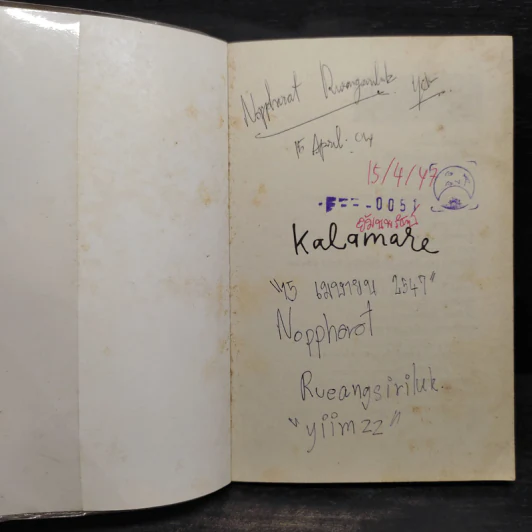 Noppharat Rueangsiriluk
15 April. 04
15/4/47
0051
Kalamare
"15 เมษายน 2547"
Noppharat
Rueangsiriluk.
"yiimzz"